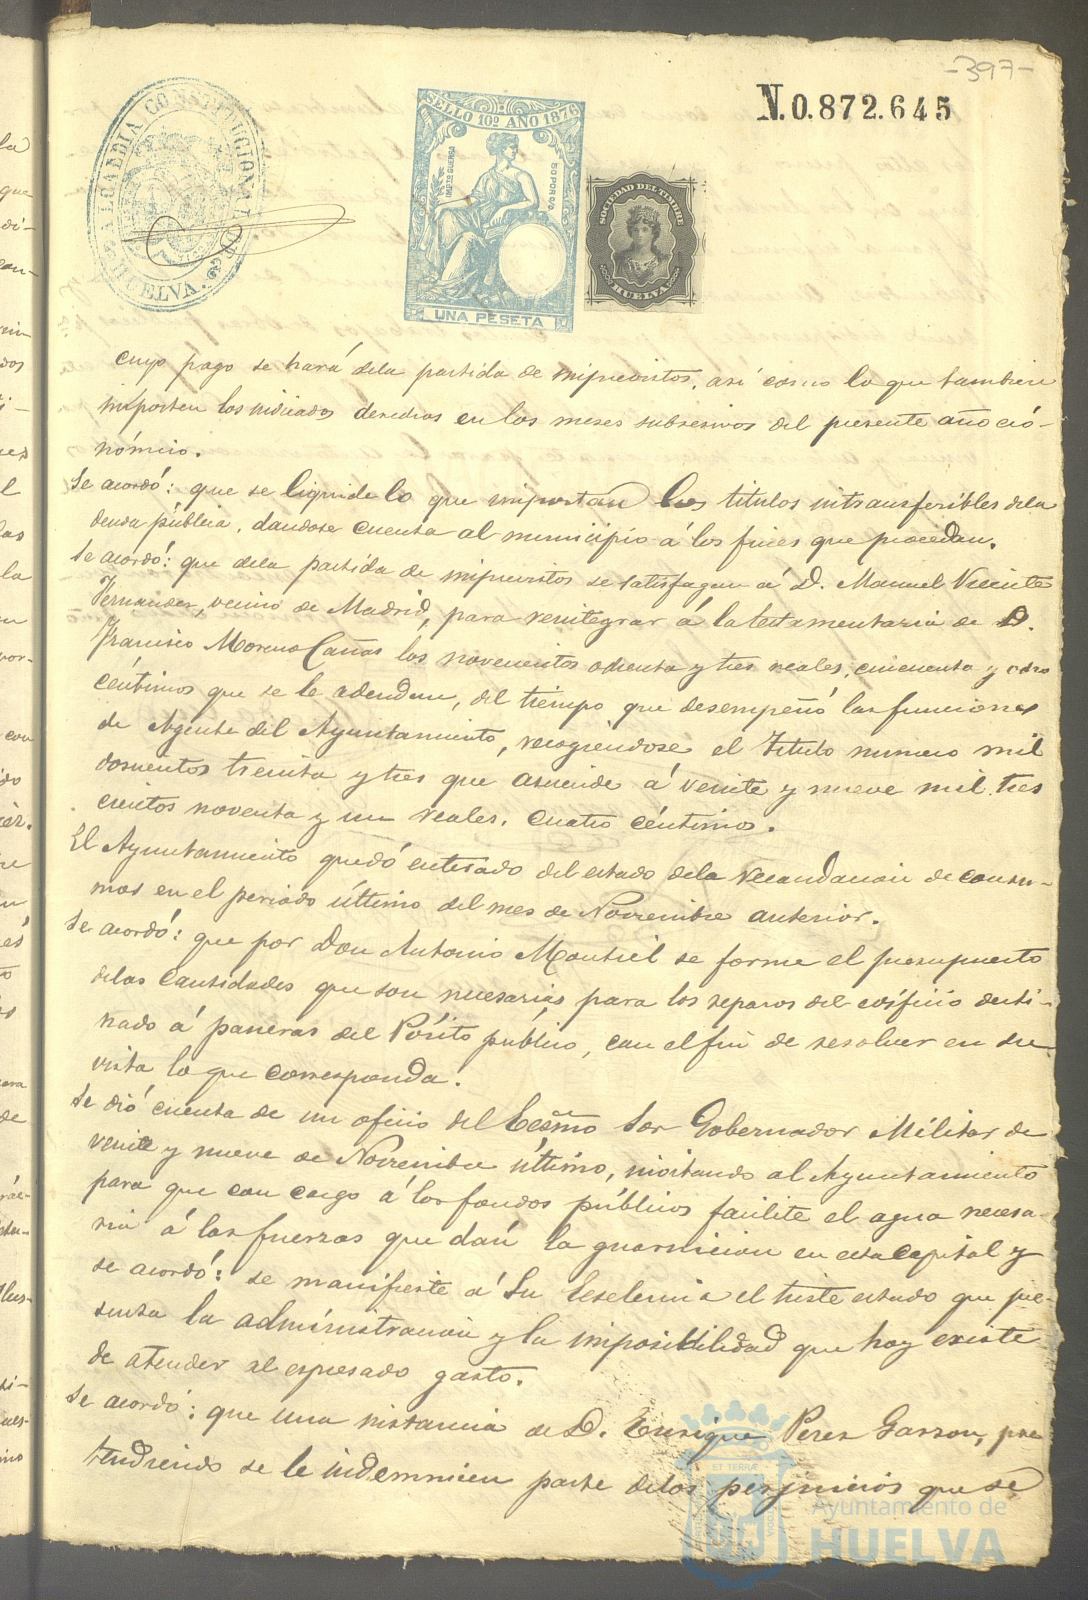 -397-
N.0.872.645
ALCALDIA CONSTITUCIONAL DE HUELVA.
SELLO 10º AÑO 1876
IMPTO GUERRA
50 POR %
UNA PESETA
SOCIEDAD DEL TIMBRE
HUELVA
cuyo pago se hará dela partida de imprevistos, así como lo que tambien
importen los indicados derechos en los meses subcesivos del presente año eco-
nómico.
Se acordó: que se liquide lo que importan los titulos intransferibles dela
deuda pública, dandose cuenta al municipio á los fines que procedan.
Se acordó: que dela partida de imprevistos se satisfagan á D. Manuel Vicente
Fernandez, vecino de Madrid, para reintegrar á la testamentaria de D.
Francisco Moreno Cañas los novecientos ochenta y tres reales, cincuenta y ocho
céntimos que se le adeudan, del tiempo que desempeñó las funciones
de Agente del Ayuntamiento, recogiendose el Titulo numero mil
doscientos treinta y tres que asciende á veinte y nueve mil tres
cientos noventa y un reales, cuatro céntimos.
El Ayuntamiento quedó enterado del estado dela recaudacion de consu-
mos en el periodo último del mes de Noviembre anterior.
Se acordó: que por Don Antonio Montiel se forme el presupuesto
delas cantidades que son necesarias para los reparos del edificio desti-
nado á paneras del Pósito público, con el fin de resolver en su
vista lo que corresponda.
Se dió cuenta de un oficio del Ecsmo Sor Gobernador Militar de
veinte y nueve de Noviembre último, incitando al Ayuntamiento
para que con cargo á los fondos públicos facilite el agua necesa-
ria á las fuerzas que dán la guarnicion en esta Capital y
se acordó: se manifieste á Su Escelencia el triste estado que pre-
senta la administracion y la imposibilidad que hoy existe
de atender al espresado gasto.
Se acordó: que una instancia de D. Enrique Perez Garzon, pre
tendiendo se le indemnicen parte delos perjuicios que se
Ayuntamiento de
HUELVA